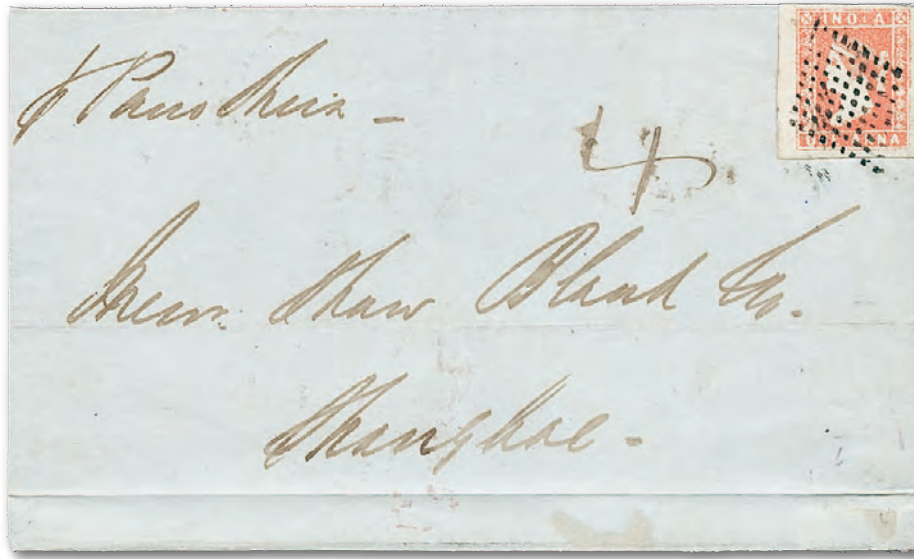 INDIA
ONE ANNA
4
Messrs. Shaw Bland Co.
Shanghae -